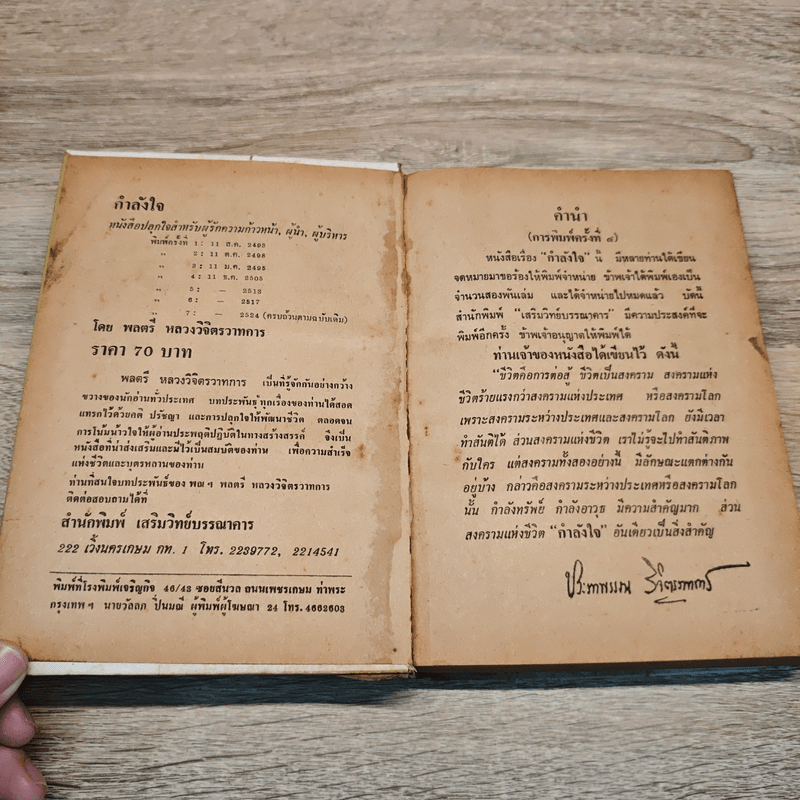 กำลังใจ
หนังสือปลุกใจสำหรับผู้รักความก้าวหน้า, ผู้นำ, ผู้บริหาร
พิมพ์ครั้งที่ 1 : 11 ส.ค. 2493
„ 2 : 11 ต.ค. 2495
„ 3 : 11 ม.ค. 2495
„ 4 : 11 ธ.ค. 2505
„ 5 : — 2513
„ 6 : — 2517
„ 7 : — 2524 (ครบถ้วนตามฉบับเดิม)
โดย พลตรี หลวงวิจิตรวาทการ
ราคา 70 บาท
พลตรี หลวงวิจิตรวาทการ เป็นที่รู้จักกันอย่างกว้าง
ขวางของนักอ่านทั่วประเทศ บทประพันธ์ทุกเรื่องของท่านได้สอด
แทรกไว้ด้วยคติ ปรัชญา และการปลุกใจให้พัฒนาชีวิต ตลอดจน
การโน้มน้าวใจให้ผู้อ่านประพฤติปฏิบัติในทางสร้างสรรค์ จึงเป็น
หนังสือที่น่าส่งเสริมและมีไว้เป็นสมบัติของท่าน เพื่อความสำเร็จ
แห่งชีวิตและบุตรหลานของท่าน
ท่านที่สนใจบทประพันธ์ของ พณฯ พลตรี หลวงวิจิตรวาทการ
ติดต่อสอบถามได้ที่
สำนักพิมพ์ เสริมวิทย์บรรณาคาร
222 เวิ้งนครเกษม กท. 1 โทร. 2239772, 2214541
พิมพ์ที่โรงพิมพ์เจริญกิจ 46/43 ซอยสีนวล ถนนเพชรเกษม ท่าพระ
กรุงเทพฯ นายวัลลภ ปิ่นมณี ผู้พิมพ์ผู้โฆษณา 24 โทร. 4662603
คำนำ
(การพิมพ์ครั้งที่ ๔)
หนังสือเรื่อง "กำลังใจ" นี้ มีหลายท่านได้เขียน
จดหมายมาขอร้องให้พิมพ์จำหน่าย ข้าพเจ้าได้พิมพ์เองเป็น
จำนวนสองพันเล่ม และได้จำหน่ายไปหมดแล้ว บัดนี้
สำนักพิมพ์ "เสริมวิทย์บรรณาคาร" มีความประสงค์ที่จะ
พิมพ์อีกครั้ง ข้าพเจ้าอนุญาตให้พิมพ์ได้
ท่านเจ้าของหนังสือได้เขียนไว้ ดังนี้
"ชีวิตคือการต่อสู้ ชีวิตเป็นสงคราม สงครามแห่ง
ชีวิตร้ายแรงกว่าสงครามแห่งประเทศ หรือสงครามโลก
เพราะสงครามระหว่างประเทศและสงครามโลก ยังมีเวลา
ทำสันติได้ ส่วนสงครามแห่งชีวิต เราไม่รู้จะไปทำสันติภาพ
กับใคร แต่สงครามทั้งสองอย่างนี้ มีลักษณะแตกต่างกัน
อยู่บ้าง กล่าวคือสงครามระหว่างประเทศหรือสงครามโลก
นั้น กำลังทรัพย์ กำลังอาวุธ มีความสำคัญมาก ส่วน
สงครามแห่งชีวิต "กำลังใจ" อันเดียวเป็นสิ่งสำคัญ
ประภาพรรณ วิจิตรวาทการ